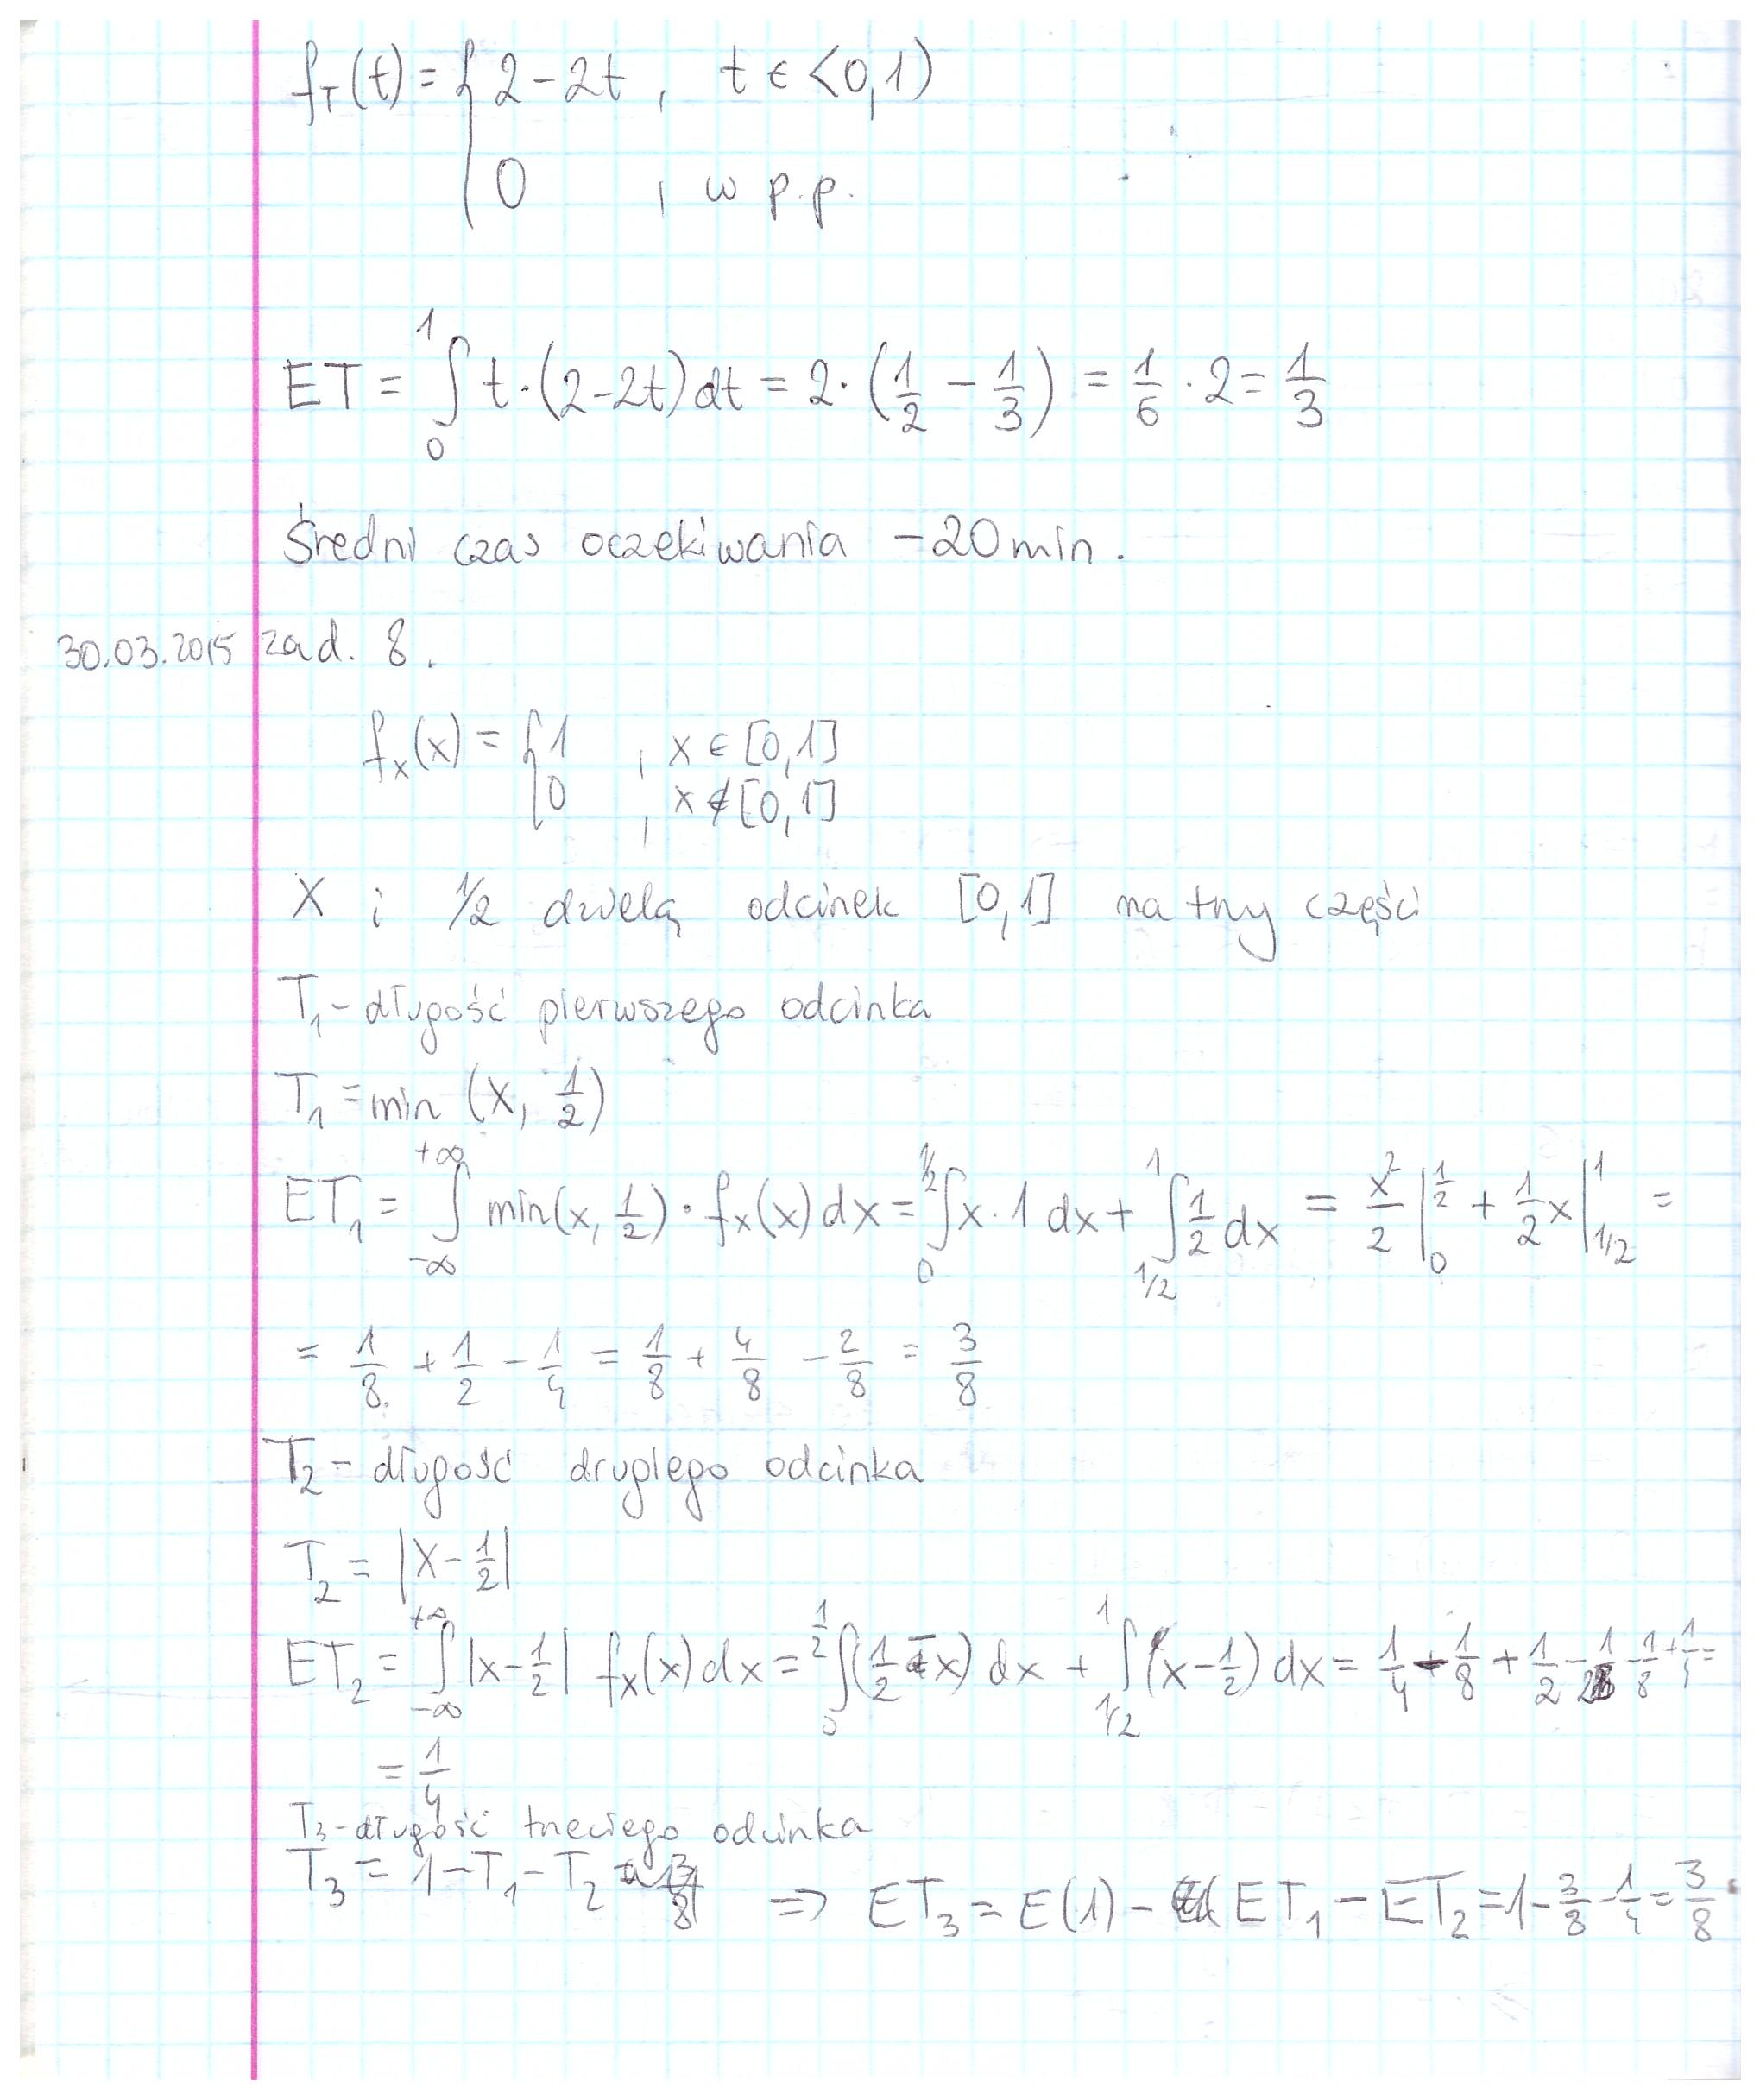 f_T(t) = { 2-2t , t ∈ <0,1)
0 , w p.p.
ET = ∫_0^1 t·(2-2t)dt = 2·(1/2 - 1/3) = 1/6 · 2 = 1/3
Średni czas oczekiwania - 20 min.
30.03.2015 zad. 8.
f_X(x) = { 1 , x ∈ [0,1]
0 , x ∉ [0,1]
X i 1/2 dzielą odcinek [0,1] na trzy części
T_1 - długość pierwszego odcinka
T_1 = min (X, 1/2)
ET_1 = ∫_{-∞}^{+∞} min(x, 1/2) · f_X(x) dx = ∫_0^{1/2} x·1 dx + ∫_{1/2}^1 1/2 dx = x²/2 |_0^{1/2} + 1/2 x |_{1/2}^1 =
= 1/8 + 1/2 - 1/4 = 1/8 + 4/8 - 2/8 = 3/8
T_2 - długość drugiego odcinka
T_2 = |X - 1/2|
ET_2 = ∫_{-∞}^{+∞} |x - 1/2| f_X(x) dx = ∫_0^{1/2} (1/2 - x) dx + ∫_{1/2}^1 (x - 1/2) dx = 1/4 - 1/8 + 1/2 - 1/2 - 1/8 + 1/4 =
= 1/4
T_3 - długość trzeciego odcinka
T_3 = 1 - T_1 - T_2 => ET_3 = E(1) - ET_1 - ET_2 = 1 - 3/8 - 1/4 = 3/8